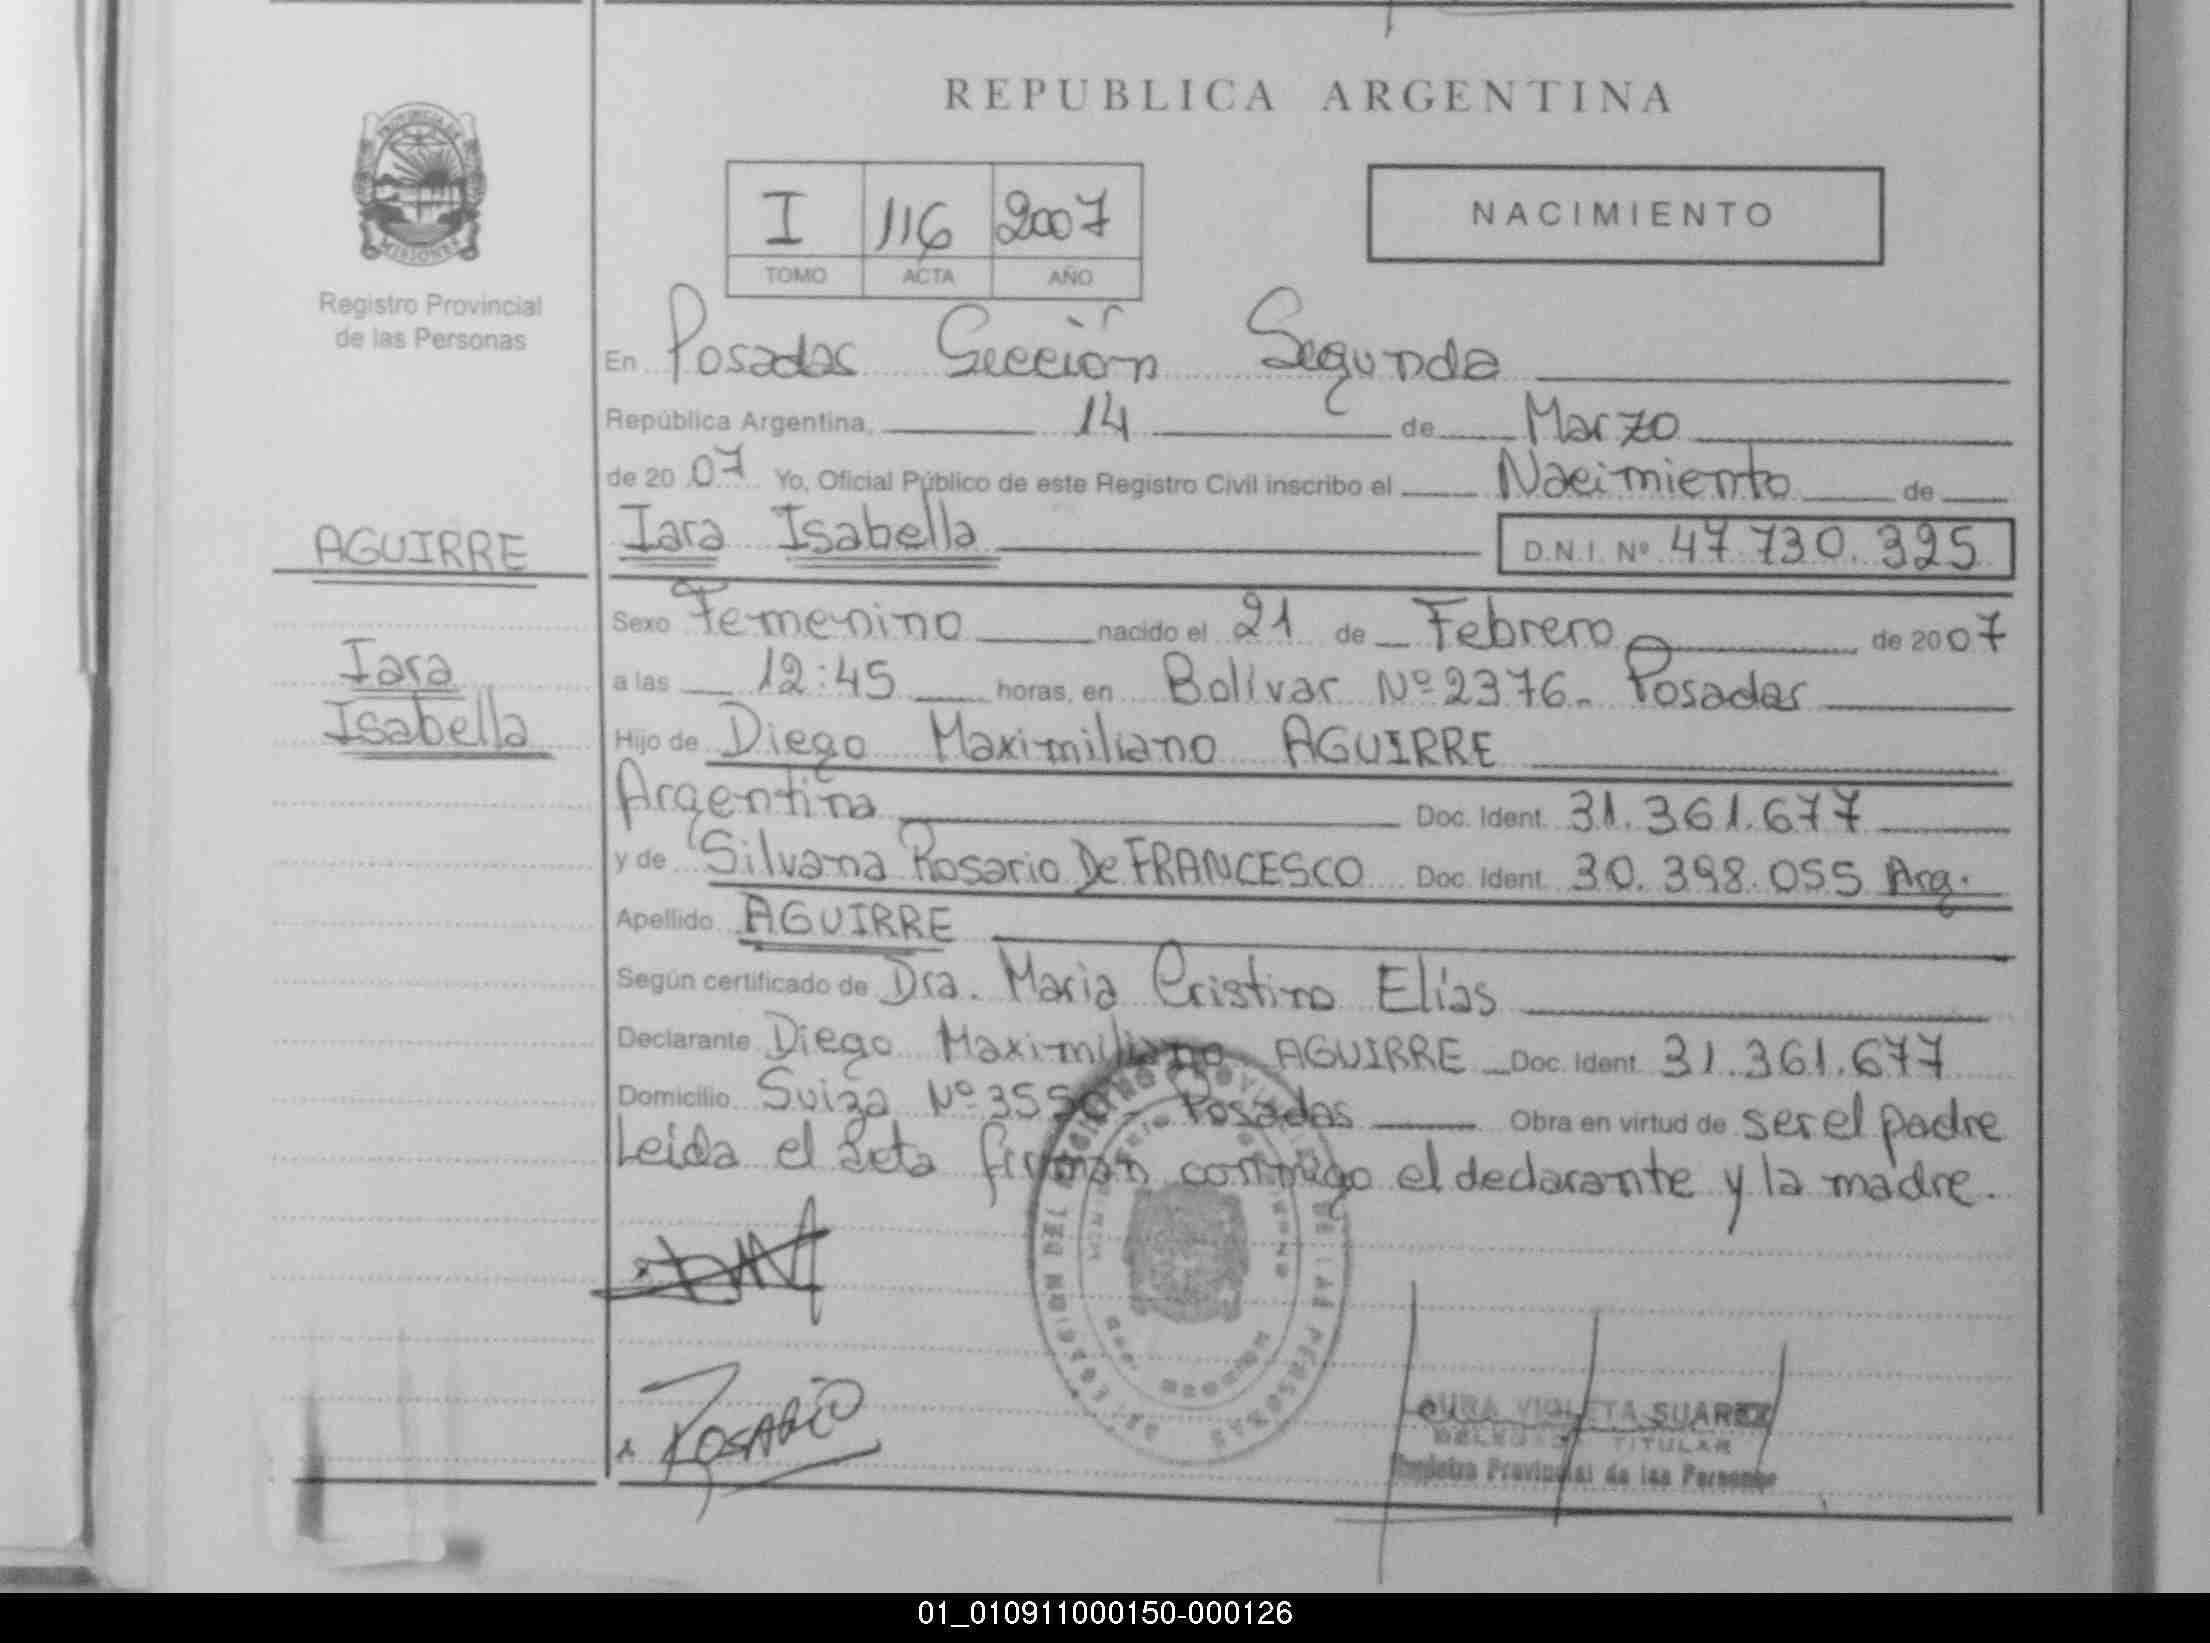 REPUBLICA ARGENTINA
PROVINCIA DE MISIONES
Registro Provincial
de las Personas
I 116 2007
TOMO ACTA AÑO
NACIMIENTO
En Posadas Sección Segunda
República Argentina, 14 de Marzo
de 20 07 Yo, Oficial Público de este Registro Civil inscribo el Nacimiento de
AGUIRRE
Iara Isabella D.N.I. Nº 47.730.325
Sexo Femenino nacido el 21 de Febrero de 20 07
Iara
Isabella
a las 12:45 horas, en Bolívar Nº 2376. Posadas
Hijo de Diego Maximiliano AGUIRRE
Argentina Doc. Ident. 31.361.677
y de Silvana Rosario De FRANCESCO Doc. Ident. 30.398.055 Arg.
Apellido AGUIRRE
Según certificado de Dra. Maria Cristina Elías
Declarante Diego Maximiliano AGUIRRE Doc. Ident. 31.361.677
Domicilio Suiza Nº Posadas Obra en virtud de ser el padre
Leida el acta firman conmigo el declarante y la madre.
ROSARIO
VIOLETA SUAREZ
DELEGADA TITULAR
Registro Provincial de las Personas
01_010911000150-000126